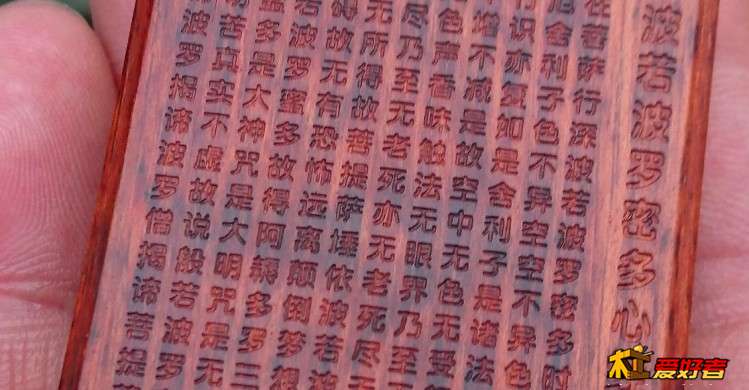 波若波罗密多心
在菩萨行深波若波罗密多时
舍利子色不异空空不异色
识亦复如是舍利子是诸法
增不减是故空中无色无受
色声香味触法无眼界乃至
尽乃至无老死亦无老死尽
无所得故菩提萨埵依波若
碍故无有恐怖远离颠倒梦想
若波罗蜜多故得阿耨多罗三
多是大神咒是大明咒是无
切苦真实不虚故说般若波罗
波罗揭谛波罗僧揭谛菩提
木工爱好者